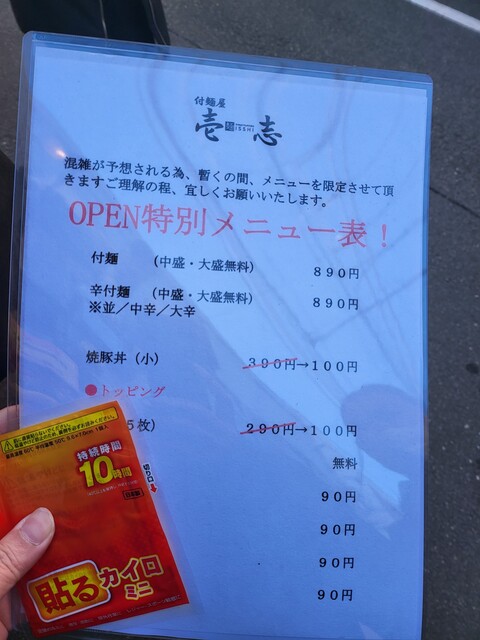 付麺屋
壱志
ISSHI
混雑が予想される為、暫くの間、メニューを限定させて頂
きますご理解の程、宜しくお願いいたします。
OPEN特別メニュー表！
付麺 (中盛・大盛無料) 890円
辛付麺 (中盛・大盛無料) 890円
※並／中辛／大辛
焼豚丼（小） 390円→100円
●トッピング
5枚） 290円→100円
無料
90円
90円
90円
90円
持続時間
10時間
切り口
日本製
貼るカイロ
ミニ